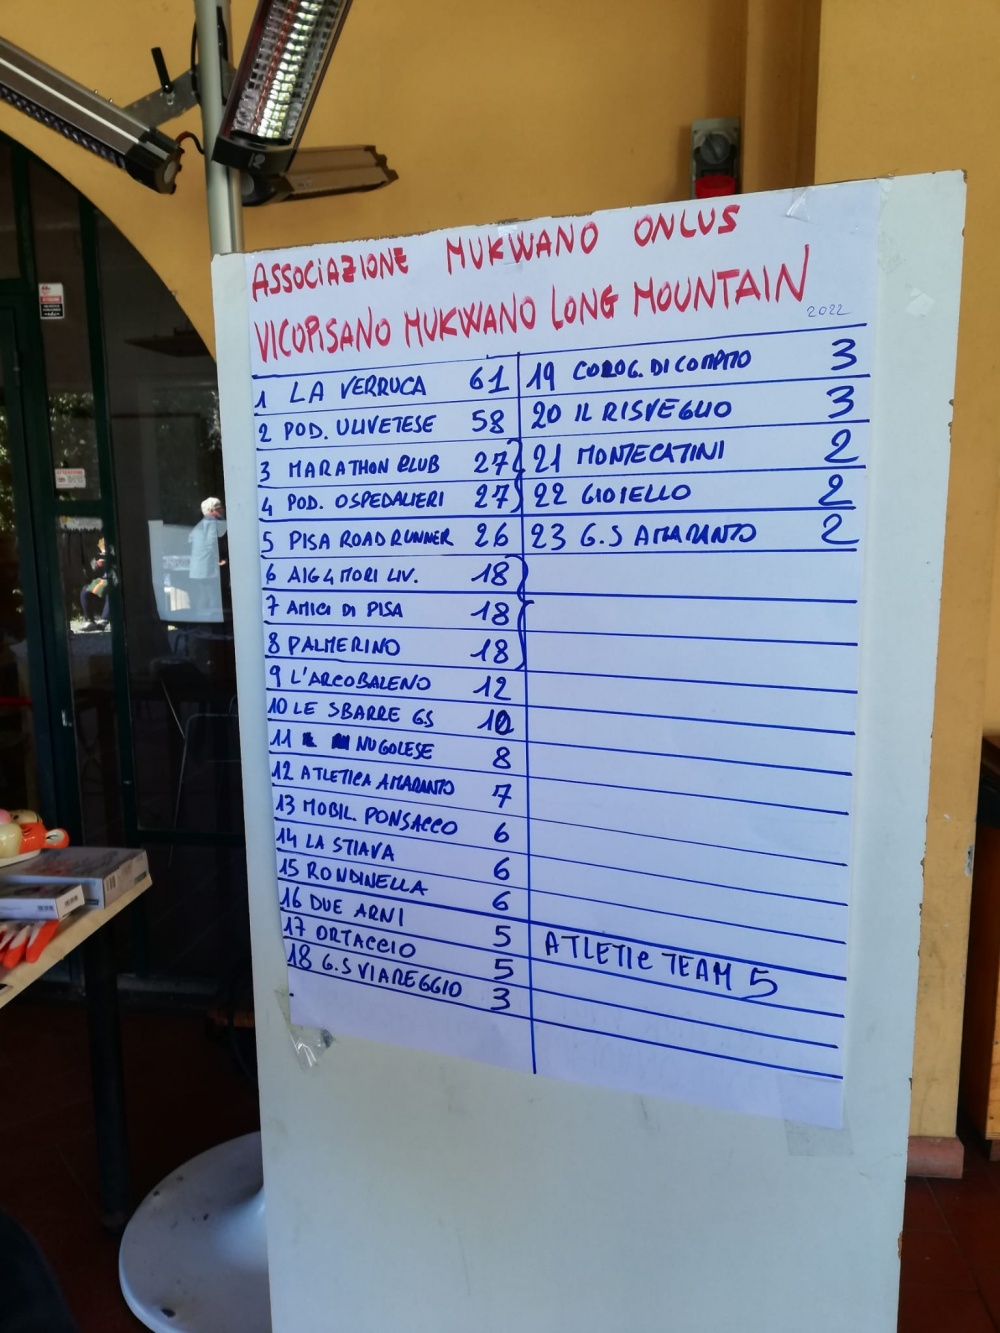 ASSOCIAZIONE MUKWANO ONLUS
VICOPISANO MUKWANO LONG MOUNTAIN
2022
1 LA VERRUCA 61
2 POD. ULIVETESE 58
3 MARATHON CLUB 27
4 POD. OSPEDALIERI 27
5 PISA ROAD RUNNER 26
6 AIG4MORI LIV. 18
7 AMICI DI PISA 18
8 PALMERINO 18
9 L'ARCOBALENO 12
10 LE SBARRE GS 10
11 NUGOLESE 8
12 ATLETICA AMARANTO 7
13 MOBIL. PONSACCO 6
14 LA STIAVA 6
15 RONDINELLA 6
16 DUE ARNI 5
17 ORTACCIO 5
18 G.S VIAREGGIO 3
19 COROG. DI COMPITO 3
20 IL RISVEGLIO 3
21 MONTECATINI 2
22 GIOIELLO 2
23 G.S AMARANTO 2
ATLETIC TEAM 5